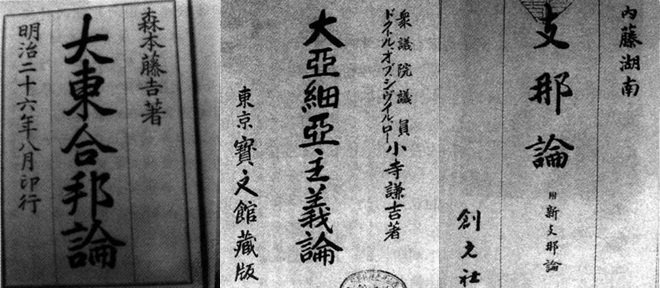 森本藤吉著
大東合邦論
明治二十六年八月印行
衆議院議員
ドクトルオブシヴイルロー
小寺謙吉著
大亞細亞主義論
東京寳文館藏版
內藤湖南
支那論
附新支那論
創元社